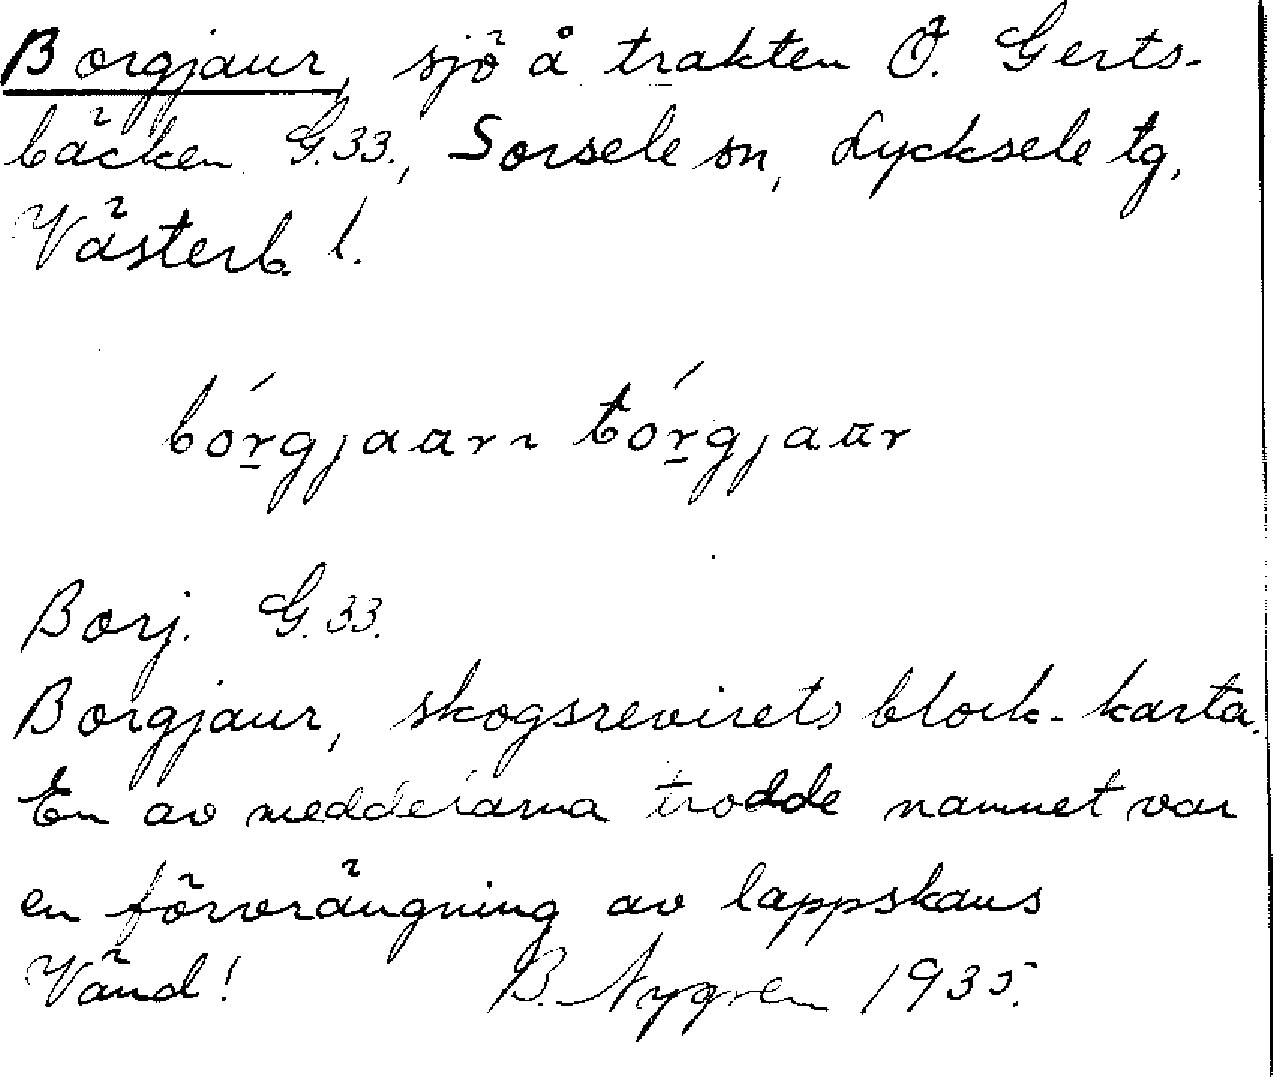 Borgjaur, sjö å trakten Ö. Gerts-
bäcken G.33., Sorsele sn, Lycksele tg,
Västerb. l.
bórg̱jaɑr ~ tórg̱jaɑr
Borj. G.33.
Borgjaur, skogsrevirets block-karta.
En av meddelarna trodde namnet var
en förvrängning av lappskans
Vänd! B. Nygren 1935.